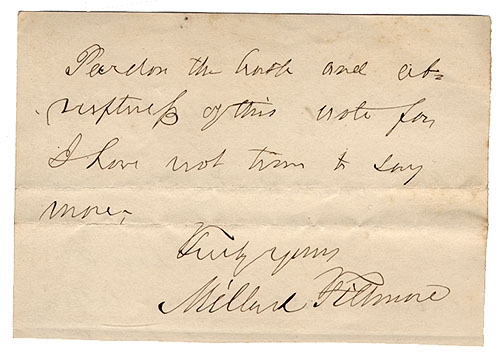 Pardon the haste and ab=
ruptness of this note for
I have not time to say
more;
Truly yours
Millard Fillmore